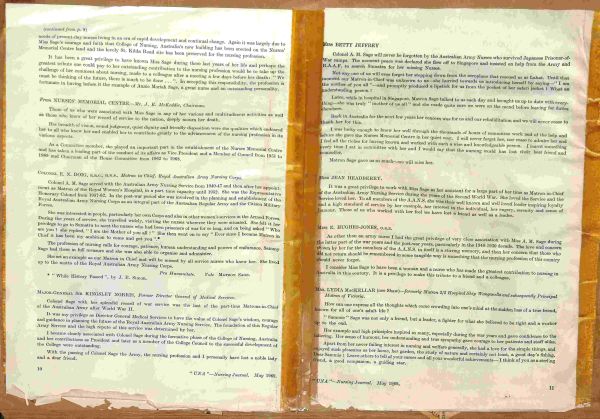 (continued from p. 9)
needs of present-day nurses living in an era of rapid development and continual change. Again it was largely due to
Miss Sage's courage and faith that College of Nursing, Australia's new building has been erected on the Nurses'
Memorial Centre land and the lovely St. Kilda Road site has been preserved for the nursing profession.
It has been a great privilege to have known Miss Sage during these last years of her life and perhaps the
greatest tribute one could pay to her outstanding contribution to the nursing profession would be to take up the
challenge of her comment about nursing, made to a colleague after a meeting a few days before her death: "We
must be thinking of the future, there is much to be done . . .". In accepting this responsibility, the profession is
fortunate in having before it the example of Annie Moriah Sage, a great nurse and an outstanding personality.
FROM NURSES' MEMORIAL CENTRE.—Mr. J. E. McKeddie, Chairman.
Those of us who were associated with Miss Sage in any of her various and multitudinous activities as well
as those who knew of her record of service to the nation, deeply mourn her death.
Her breadth of vision, sound judgment, quiet dignity and friendly disposition were the qualities which endeared her
to all who knew her and enabled her to contribute greatly to the advancement of the nursing profession in its
various aspects.
As a Committee member, she played an important part in the establishment of the Nurses Memorial Centre
and has taken a leading part of the conduct of its affairs as Vice President and a Member of Council from 1951 to
1969 and Chairman of the House Committee from 1962 to 1969.
COLONEL E. N. DOIG, R.R.C., Q.H.N., Matron in Chief Royal Australian Army Nursing Corps.
Colonel A. M. Sage served with the Australian Army Nursing Service from 1940-47 and then after her appoint-
ment as Matron of the Royal Women's Hospital, in a part time capacity until 1952. She was the Representative
Honorary Colonel from 1957-62. In the post-war period she was involved in the planning and establishment of the
Royal Australian Army Nursing Corps as an integral part of the Australian Regular Army and the Citizen Military
Forces.
She was interested in people, particularly her own Corps and also in other women's services in the Armed Forces.
During the years of service, she travelled widely, visiting the nurses wherever they were situated. She felt it her
duty to be in Singapore to meet the nurses who had been prisoners of war for so long, and on being asked "Who
are you?" she replied, "I am the Mother of you all!" She then went on to say "Ever since I became Matron in
Chief it has been my ambition to come and get you".*
The profession of nursing calls for courage, patience, human understanding and powers of endurance. Sammy
Sage had these as full measure and she was also able to organise and administer.
She set an example as our Matron in Chief and will be missed by all service nurses who knew her. She lived
up to the motto of the Royal Australian Army Nursing Corps.
Pro Humanitate. Vale Matron Sage.
* "While History Passed", by J. E. Simon.
MAJOR-GENERAL SIR KINGSLEY NORRIS, Former Director General of Medical Services.
Colonel Sage with her splendid record of war service was the last of the part-time Matrons-in-Chief
of the Australian Army after World War II.
It was my privilege as Director General Medical Services to have the value of Colonel Sage's wisdom, courage
and guidance in planning the future of the Royal Australian Army Nursing Service. The foundation of this Regular
Army Service and the high repute of this service was determined by her.
I became closely associated with Colonel Sage during the formative phase of the College of Nursing, Australia
and her contributions as President and later as a member of the College Council to the successful development of
the College were outstanding.
With the passing of Colonel Sage the Army, the nursing profession and I personally have lost a noble lady
and a dear friend.
10
"UNA"—Nursing Journal. May 1969.
MISS BETTY JEFFREY
Colonel A. M. Sage will never be forgotten by the Australian Army Nurses who survived Japanese Prisoner-of-
War camps. The moment peace was declared she flew off to Singapore and insisted on help from the Army and
R.A.A.F. to search Sumatra for her missing Nurses.
Not any one of us will ever forget her stepping down from the aeroplane that rescued us at Lahat. Until that
moment our Matron-in-Chief was unknown to us—she hurried towards us introducing herself by saying—"I am
the mother of you all"—and promptly produced a lipstick for us from the pocket of her safari jacket! What an
understanding person!
Later, while in hospital in Singapore, Matron Sage talked to us each day and brought us up to date with every-
thing—she was truly "mother of us all" and she made quite sure we were on the mend before leaving for duties
elsewhere.
Back in Australia for the next few years her concern was for us and our rehabilitation and we will never cease to
thank her for this.
I was lucky enough to know her well through the thousands of hours of committee work and of the help and
advice she gave the Nurses Memorial Centre in her quiet way. I will never forget her, nor cease to admire her and
I feel all the richer for having known and worked with such a wise and knowledgeable person. I learnt something
every time I met in committee with her and I would say that the nursing world has lost their best friend and
counsellor.
Matron Sage gave us so much—we will miss her.
MISS JEAN HEADBERRY.
It was a great privilege to work with Miss Sage as her assistant for a large part of her time as Matron in Chief
of the Australian Army Nursing Service during the years of the Second World War. She loved the Service and the
Service loved her. To all members of the A.A.N.S. she was their well known and well loved leader inspiring loyalty
and a high standard of service by her example, her interest in the individual, her vagary, serenity and sense of
humour. Those of us who worked with her feel we have lost a friend as well as a leader.
MISS E. HUGHES-JONES, O.B.E.
As other than an army nurse I had the great privilege of very close association with Miss A. M. Sage during
the latter part of the war years and the post-war years, particularly in the 1948 to 1950 decade. The love and concern
shown by her for the members of the A.A.N.S. in itself is a stirring memory, and then her concern that those who
did not return should be remembered in some tangible way is something that the nursing profession of this country
should never forget.
I consider Miss Sage to have been a woman and a nurse who has made the greatest contribution to nursing in
Australia in this century. It is a privilege to make this tribute to a friend and a colleague.
MRS. LYDIA McKELLAR (nee Shaw)—formerly Matron 2/3 Hospital Ship Wanganella and subsequently Principal
Matron of Victoria.
How can one express all the thoughts which come crowding into one's mind at the sudden loss of a true friend,
known for all of one's adult life?
"Sammie" Sage was not only my friend, but a leader, a fighter for what she believed to be right and a worker
up to the end.
Her example and high principles inspired so many, especially during the war years and gave confidence to the
faltering. Her sense of humour, her understanding and true sympathy gave courage to her patients and staff alike.
Apart from her never failing interest in nursing and welfare generally, she had a love for the simple things, and
enjoyed such pleasures as her home, her garden, the study of nature and certainly not least, a good day's fishing.
Dear Sammie! Leave others to tell of your career and all your wonderful achievements—I think of you as a sterling
friend, a good companion, a guiding star.
"UNA"—Nursing Journal. May 1969.
11